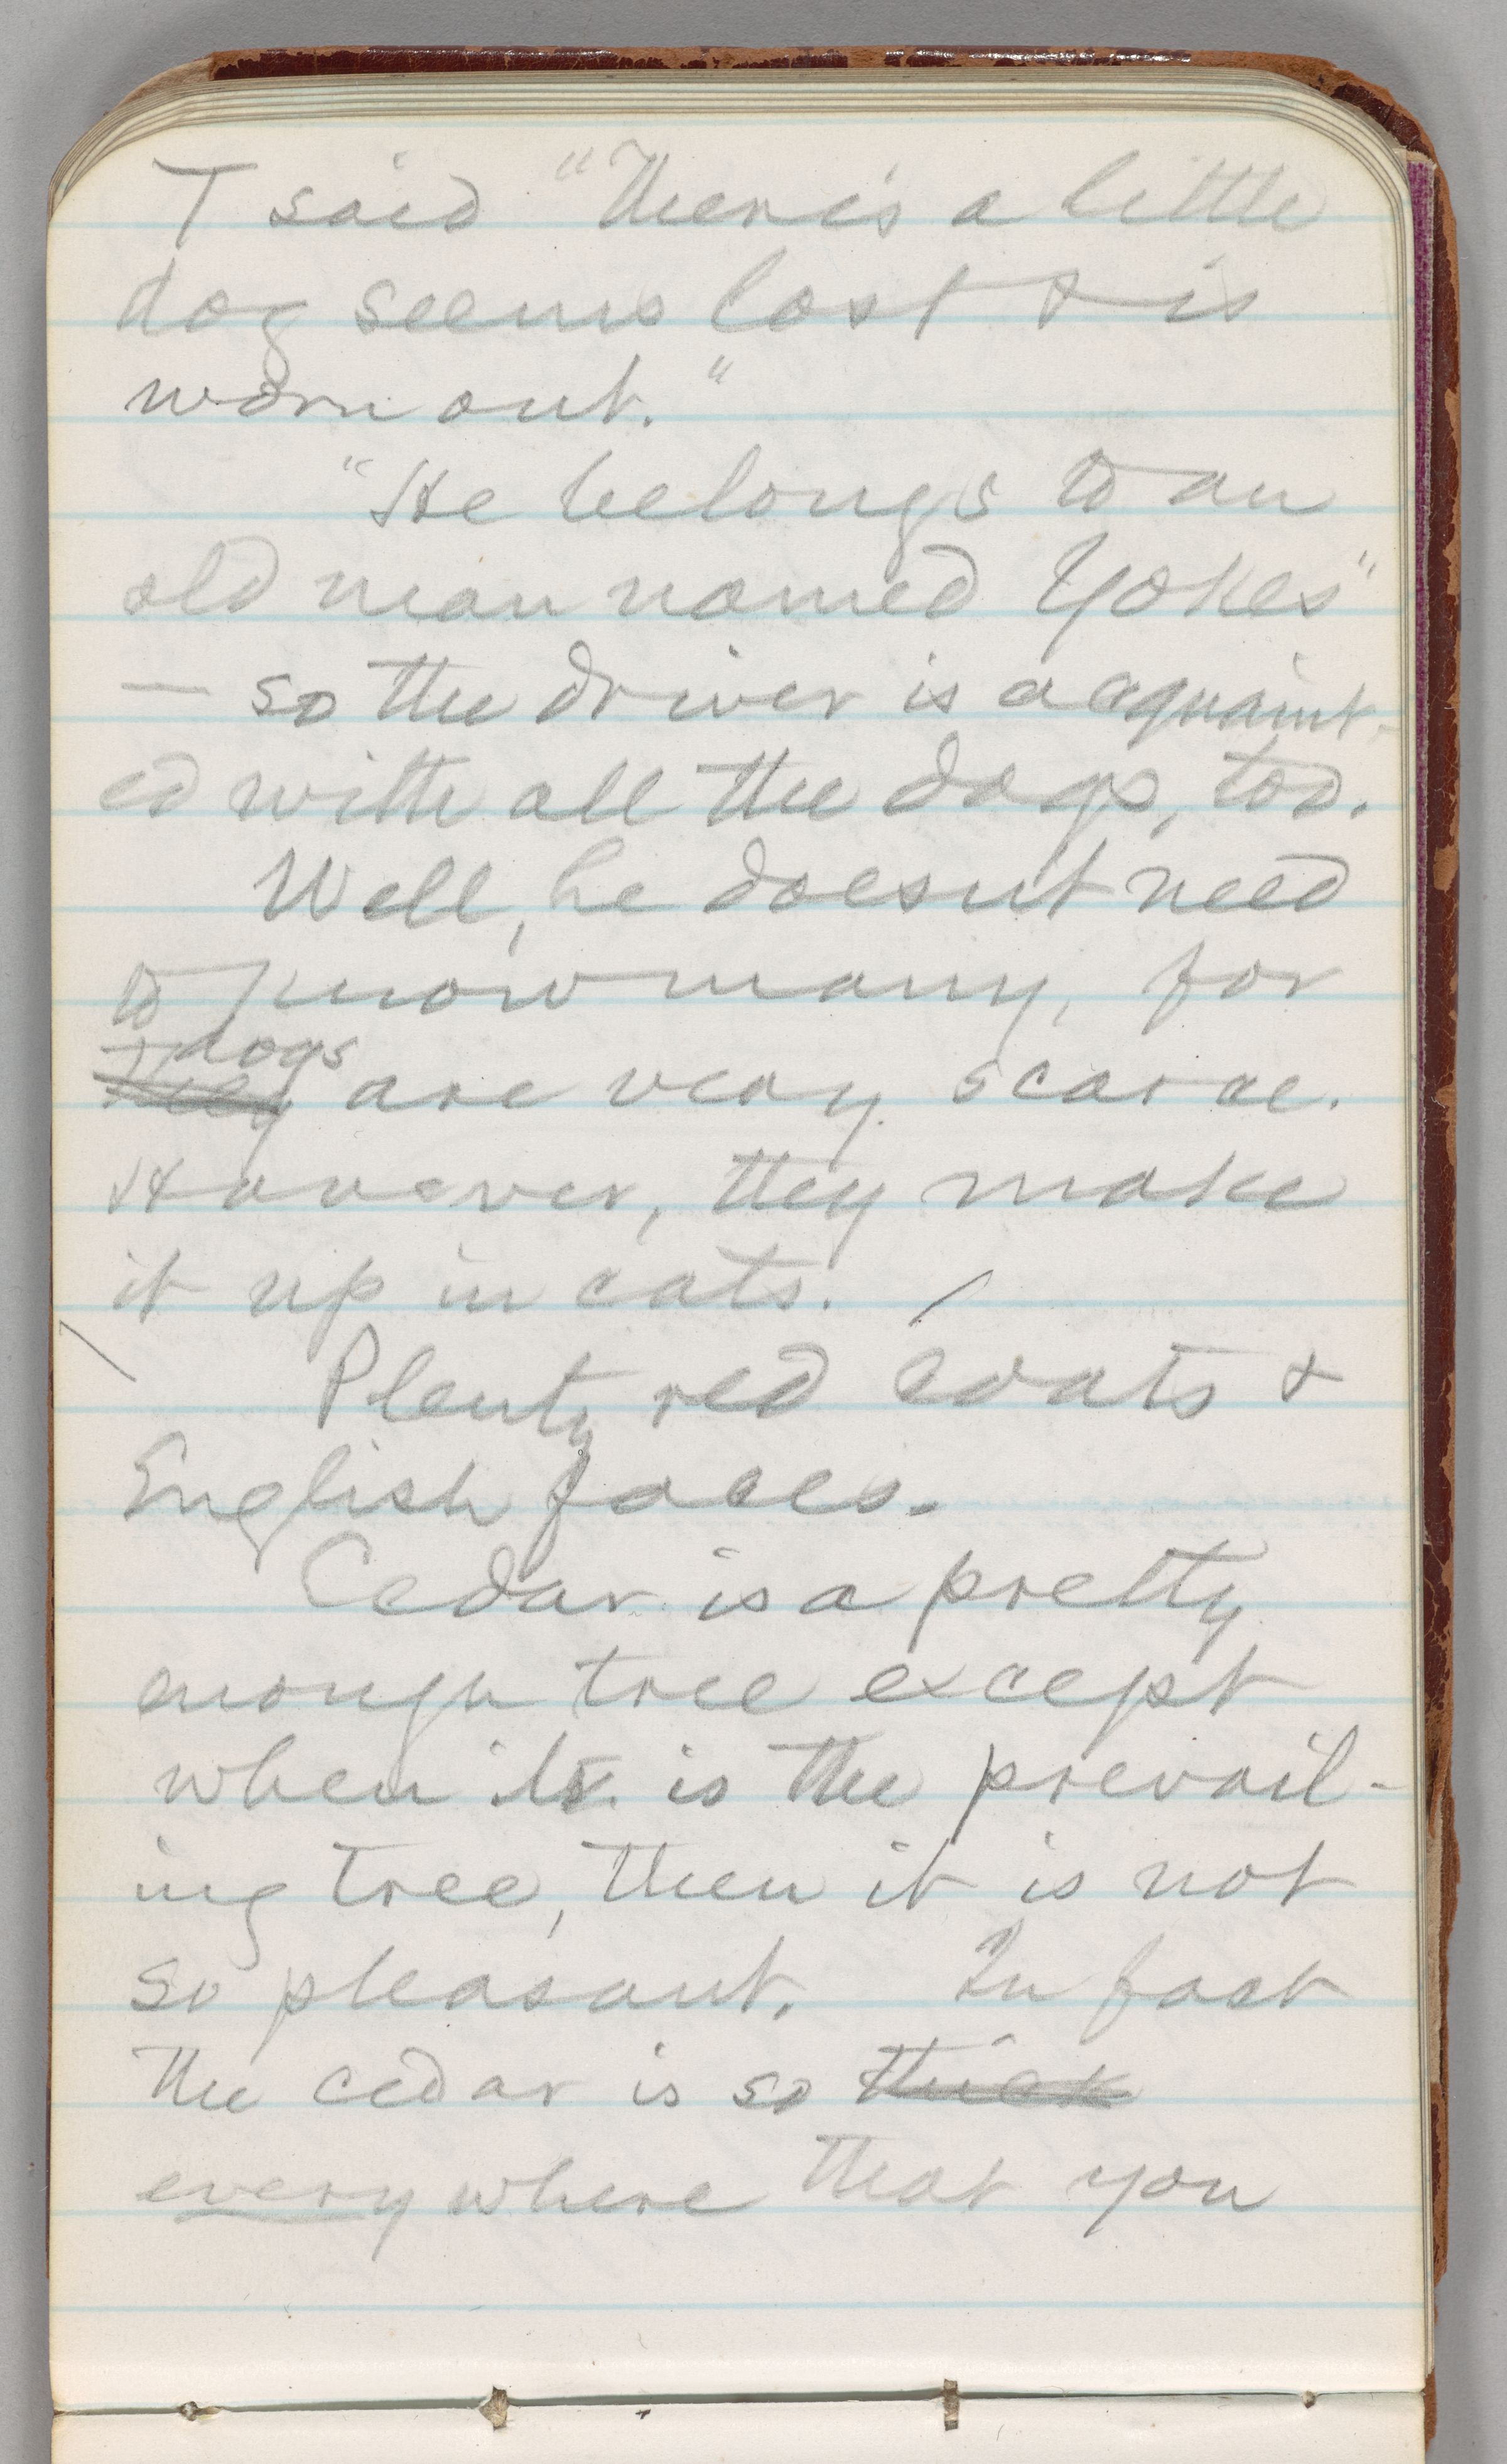 T said "There's a little
dog seems lost & is
worn out."
"He belongs to an
old man named Yokes"
— so the driver is acquaint-
ed with all the dogs, too.
Well, he doesn't need
to know many, for
dogs
they are very scarce.
However, they make
it up in cats. /
Plenty red coats &
English faces.
Cedar is a pretty
enough tree except
when it is the prevail-
ing tree, then it is not
so pleasant. In fact
the cedar is so thick
everywhere that you